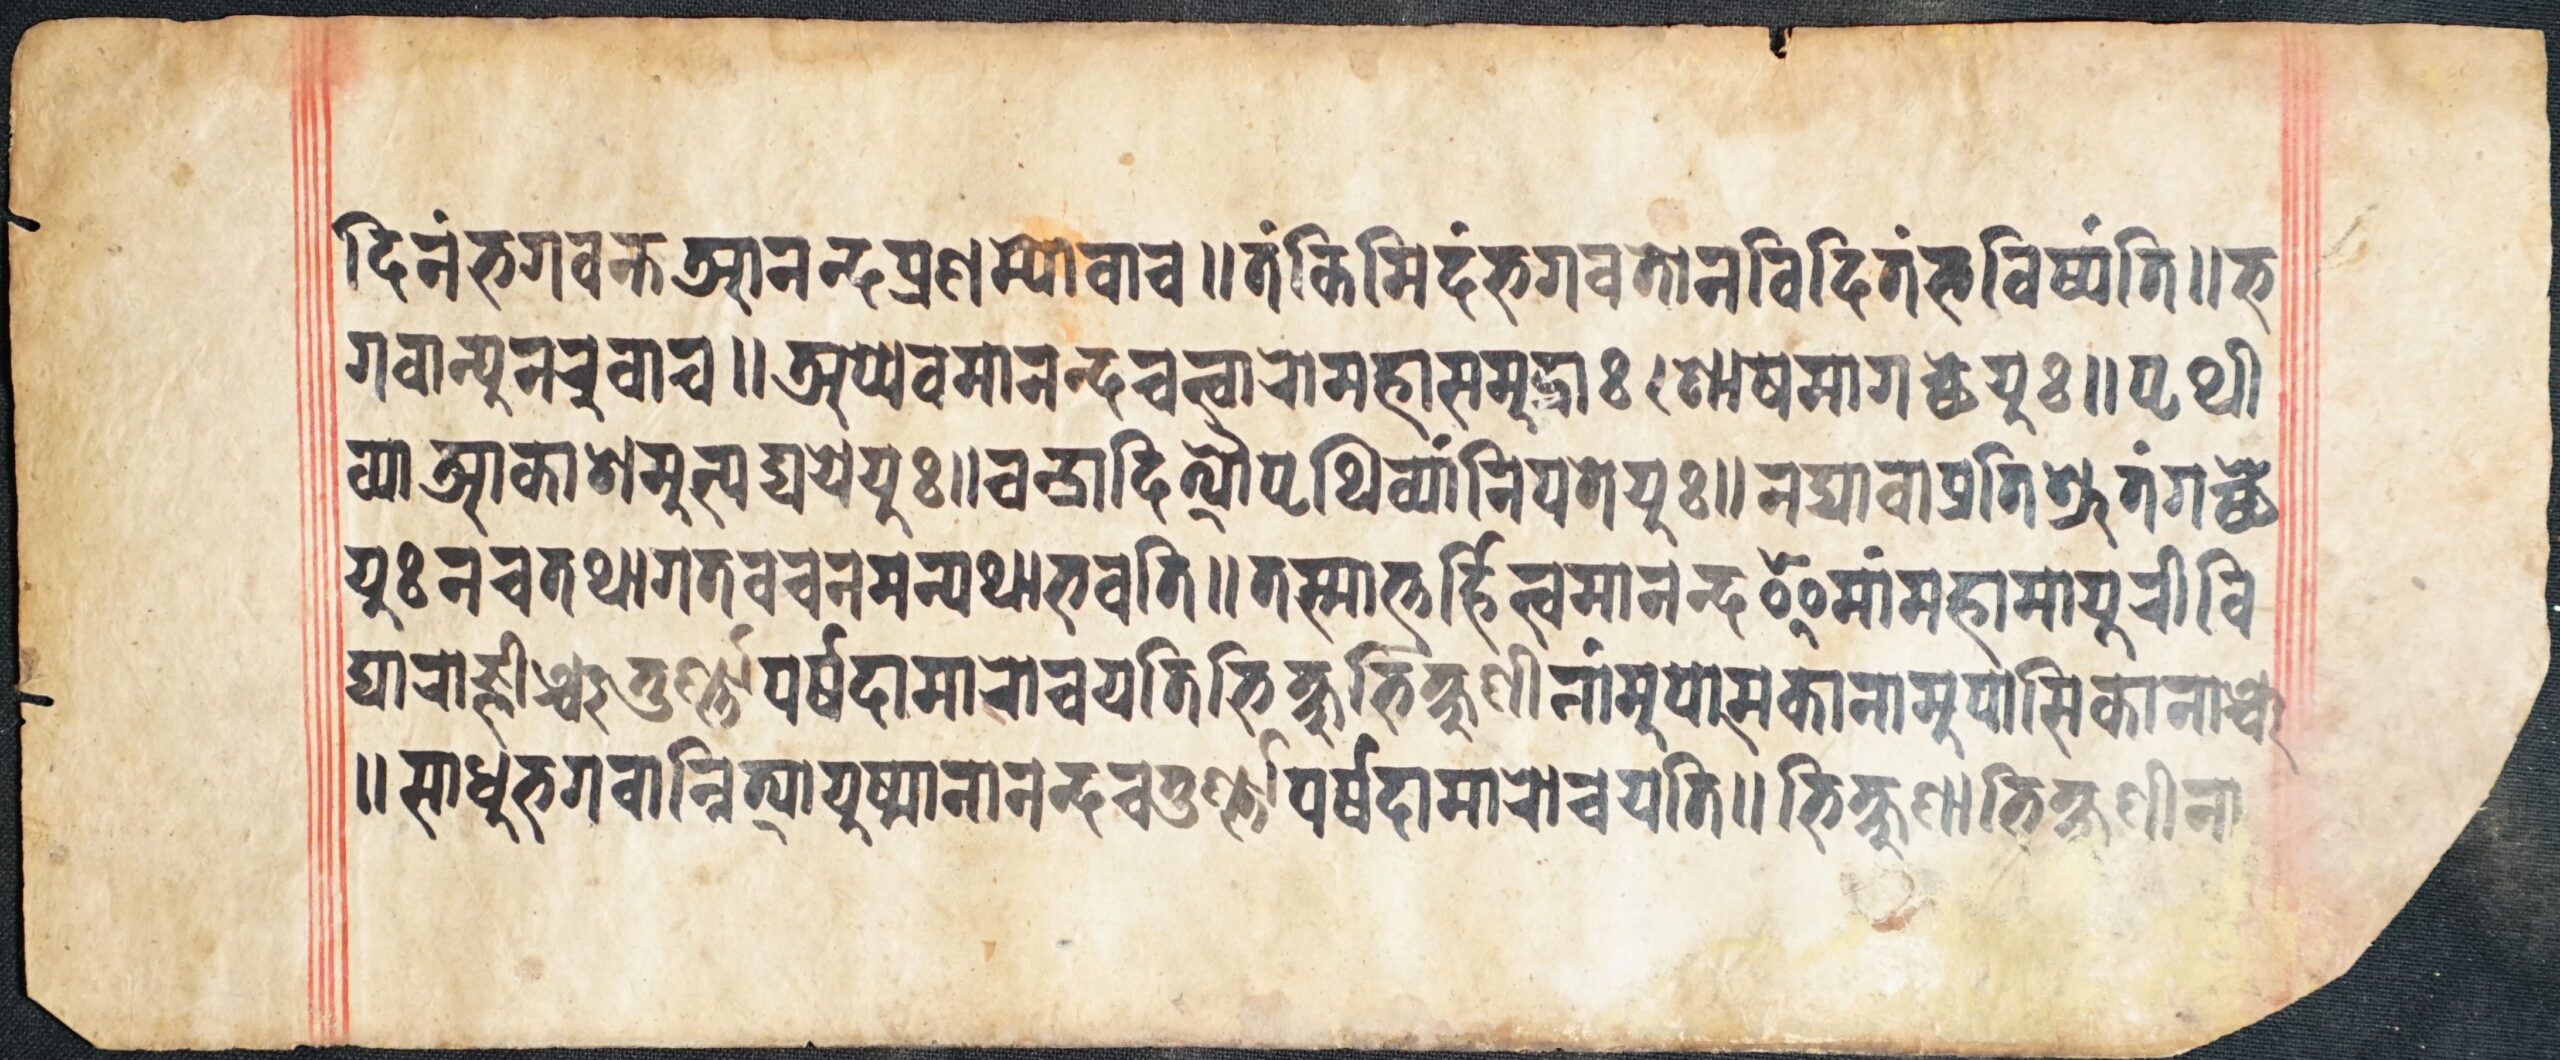 दिनं भगवन्त आनन्द प्रणम्योवाच ॥ तं किमिदं भगवतो न विदितं भविष्यंति ॥ भ
गवान्पुनरुवाच ॥ अप्येवमानन्द चत्वारो महासमुद्राः शोषमागच्छेयुः ॥ पृथी
व्या आकाशमुत्पद्ययेयुः ॥ चन्द्रादित्यौ पृथिव्यां निपतेयुः ॥ नद्यो वा प्रतिश्रुतं गच्छे
युः न च तथागतवचनमन्यथा भवति ॥ तस्मात्तर्हि त्वमानन्द इमां महामायुरी वि
द्याराज्ञीञ्चतुर्ण्णां पर्षदामारोचयति भिक्षुभिक्षुणीनांमुपासकानामुपासिकानाञ्च
॥ साधु भगवान्नित्यायुष्मानानन्द चतुर्ण्णां पर्षदामारोचयति ॥ भिक्षुणा भिक्षुणीना